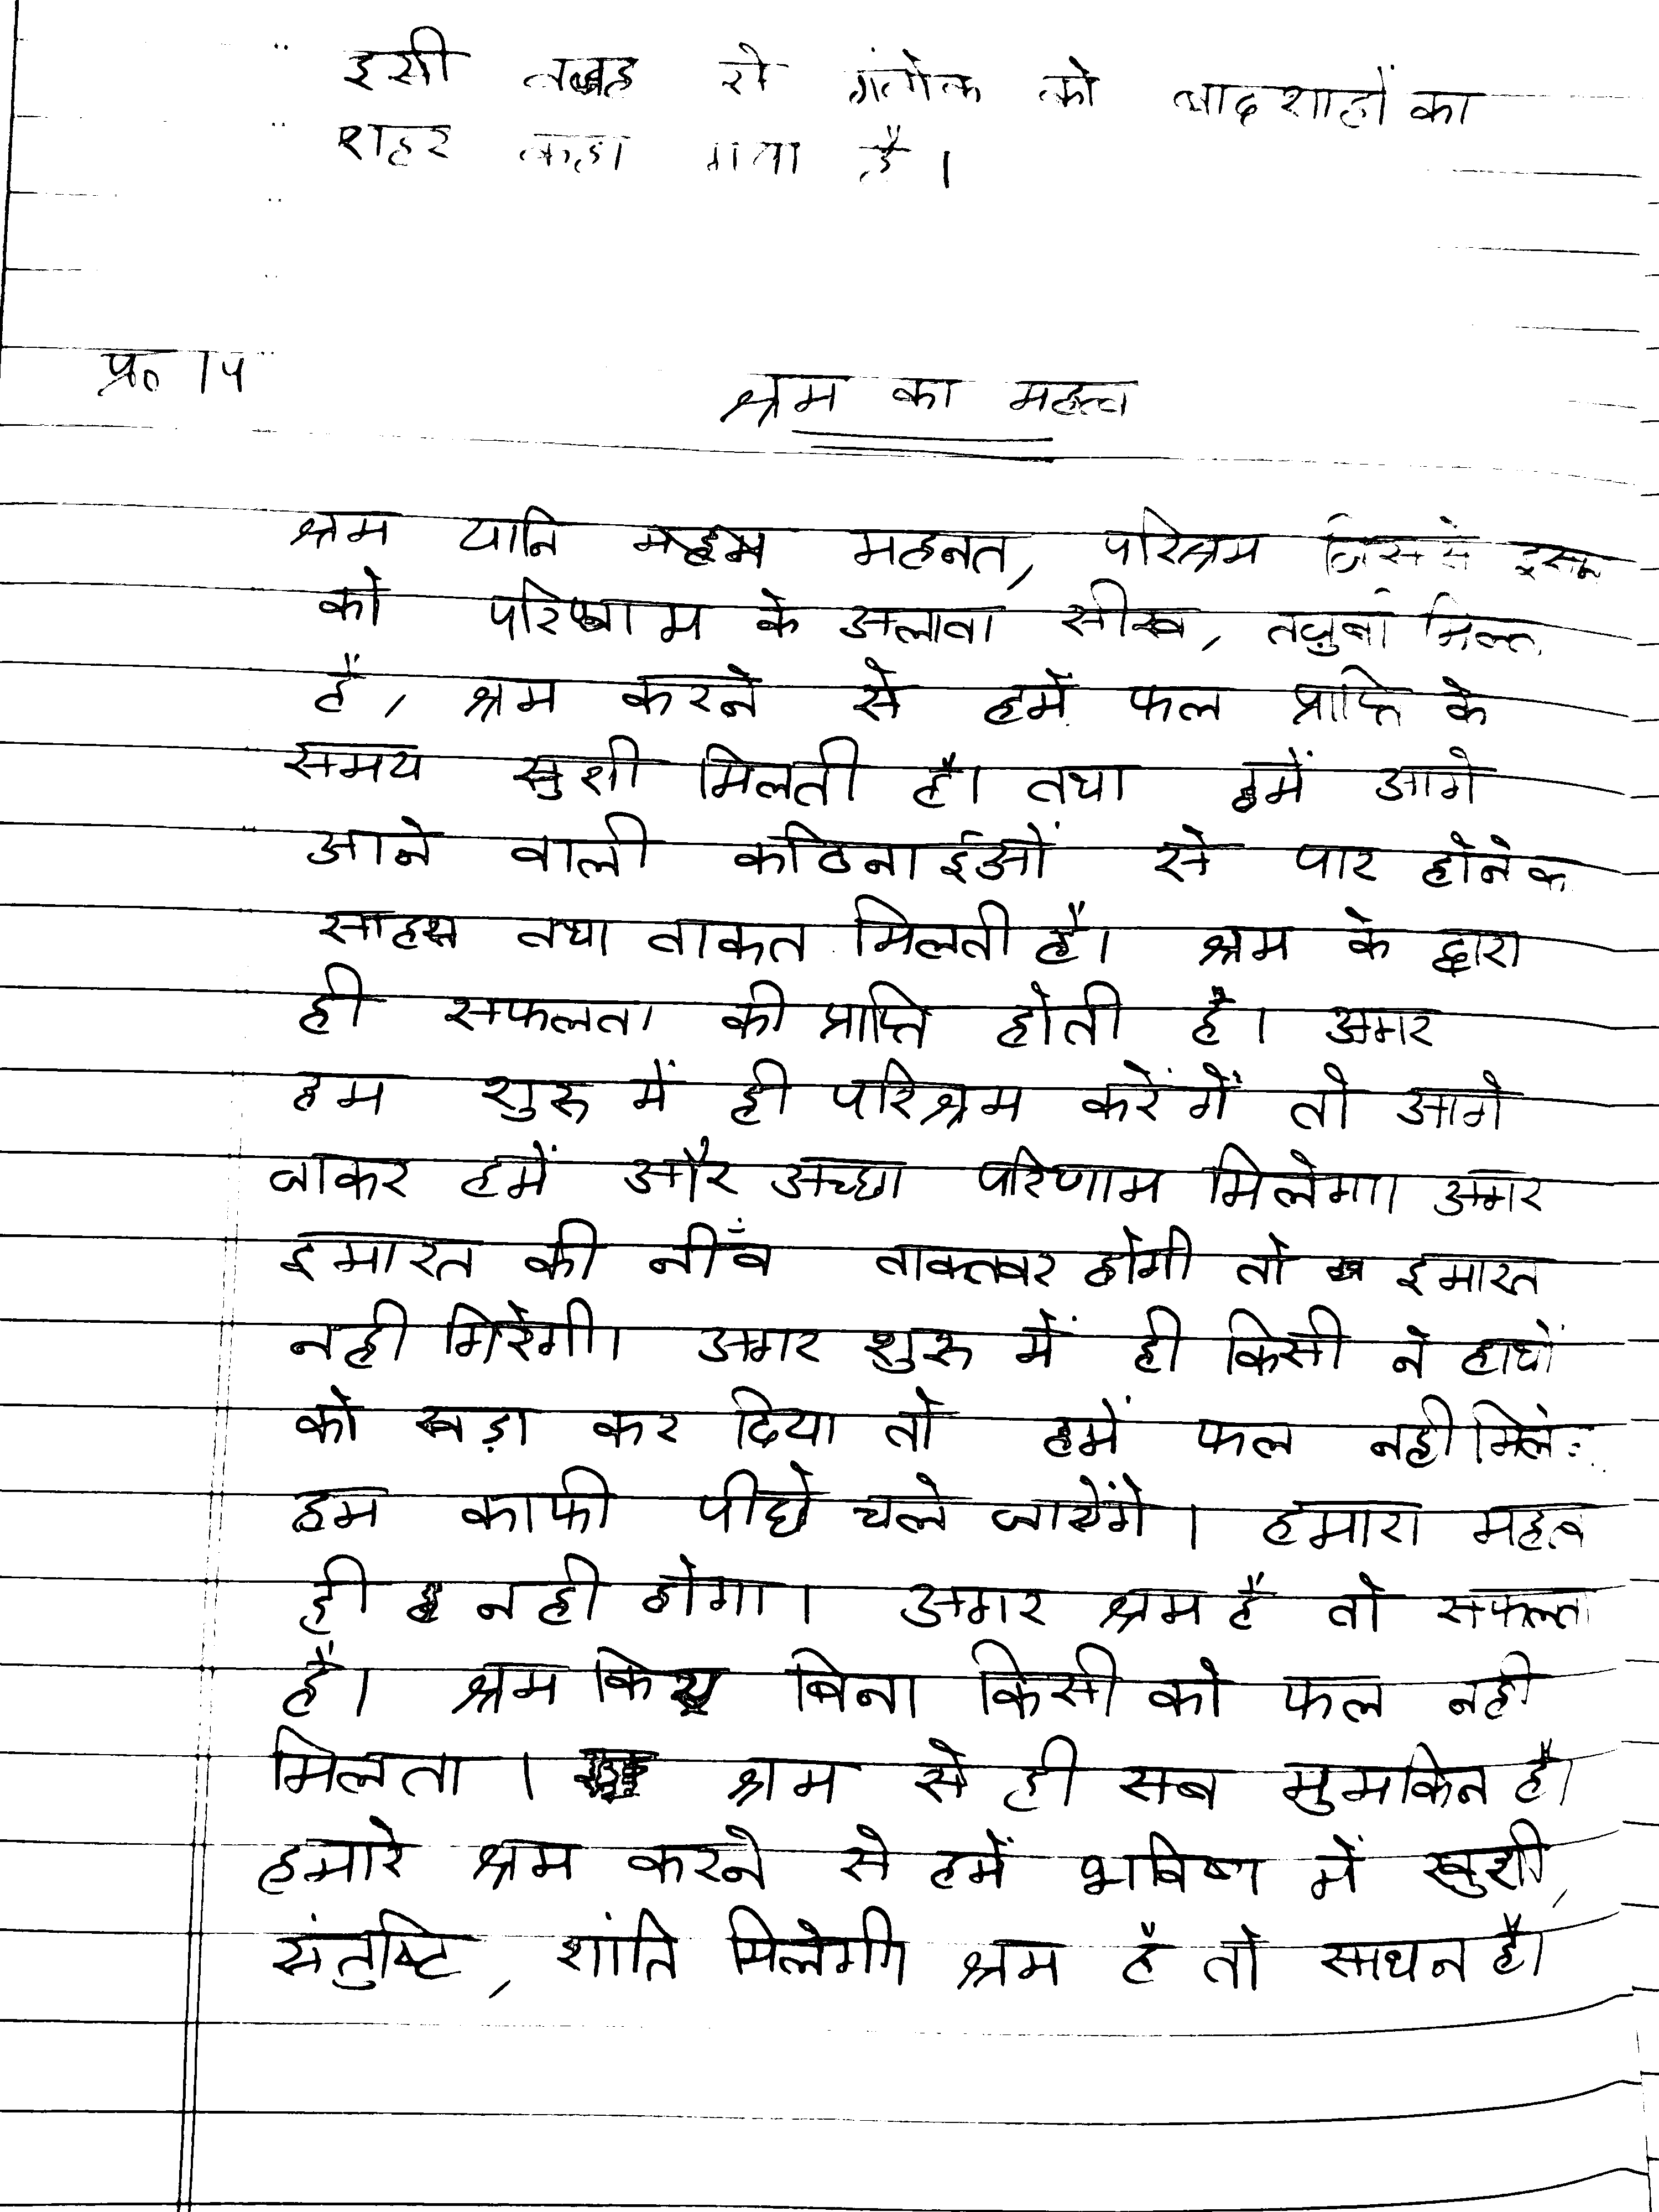 इसी वजह से गंतोक को बादशाहों का
शहर कहा गया है।
प्र० 14
श्रम का महत्व
श्रम यानि महनत, परिश्रम जिससे
को परिणाम के अलावा सीख, तजुर्बा
है, श्रम करने से हमें फल प्राप्ति के
समय खुशी मिलती है। तथा हमें आगे
आने वाली कठिनाईओं से पार होने
साहस तथा ताकत मिलती है। श्रम के द्वारा
ही सफलता की प्राप्ति होती है। अगर
हम शुरु में ही परिश्रम करेंगें तो आगे
जाकर हमें और अच्छा परिणाम मिलेगा। अगर
इमारत की नीँव ताकतवर होगी तो इमारत
नही गिरेगी। अगर शुरु में ही किसी ने हाथों
को खड़ा कर दिया तो हमें फल नही
हम काफी पीछे चले जायेंगे। हमारा महत्व
ही नही होगा। अगर श्रम है तो सफलता
है। श्रम किये बिना किसी को फल नही
मिलता । श्रम से ही सब मुमकिन है।
हमारे श्रम करने से हमें भविष्य में खुशी,
संतुष्टि, शांति मिलेगी। श्रम है तो साधन है।